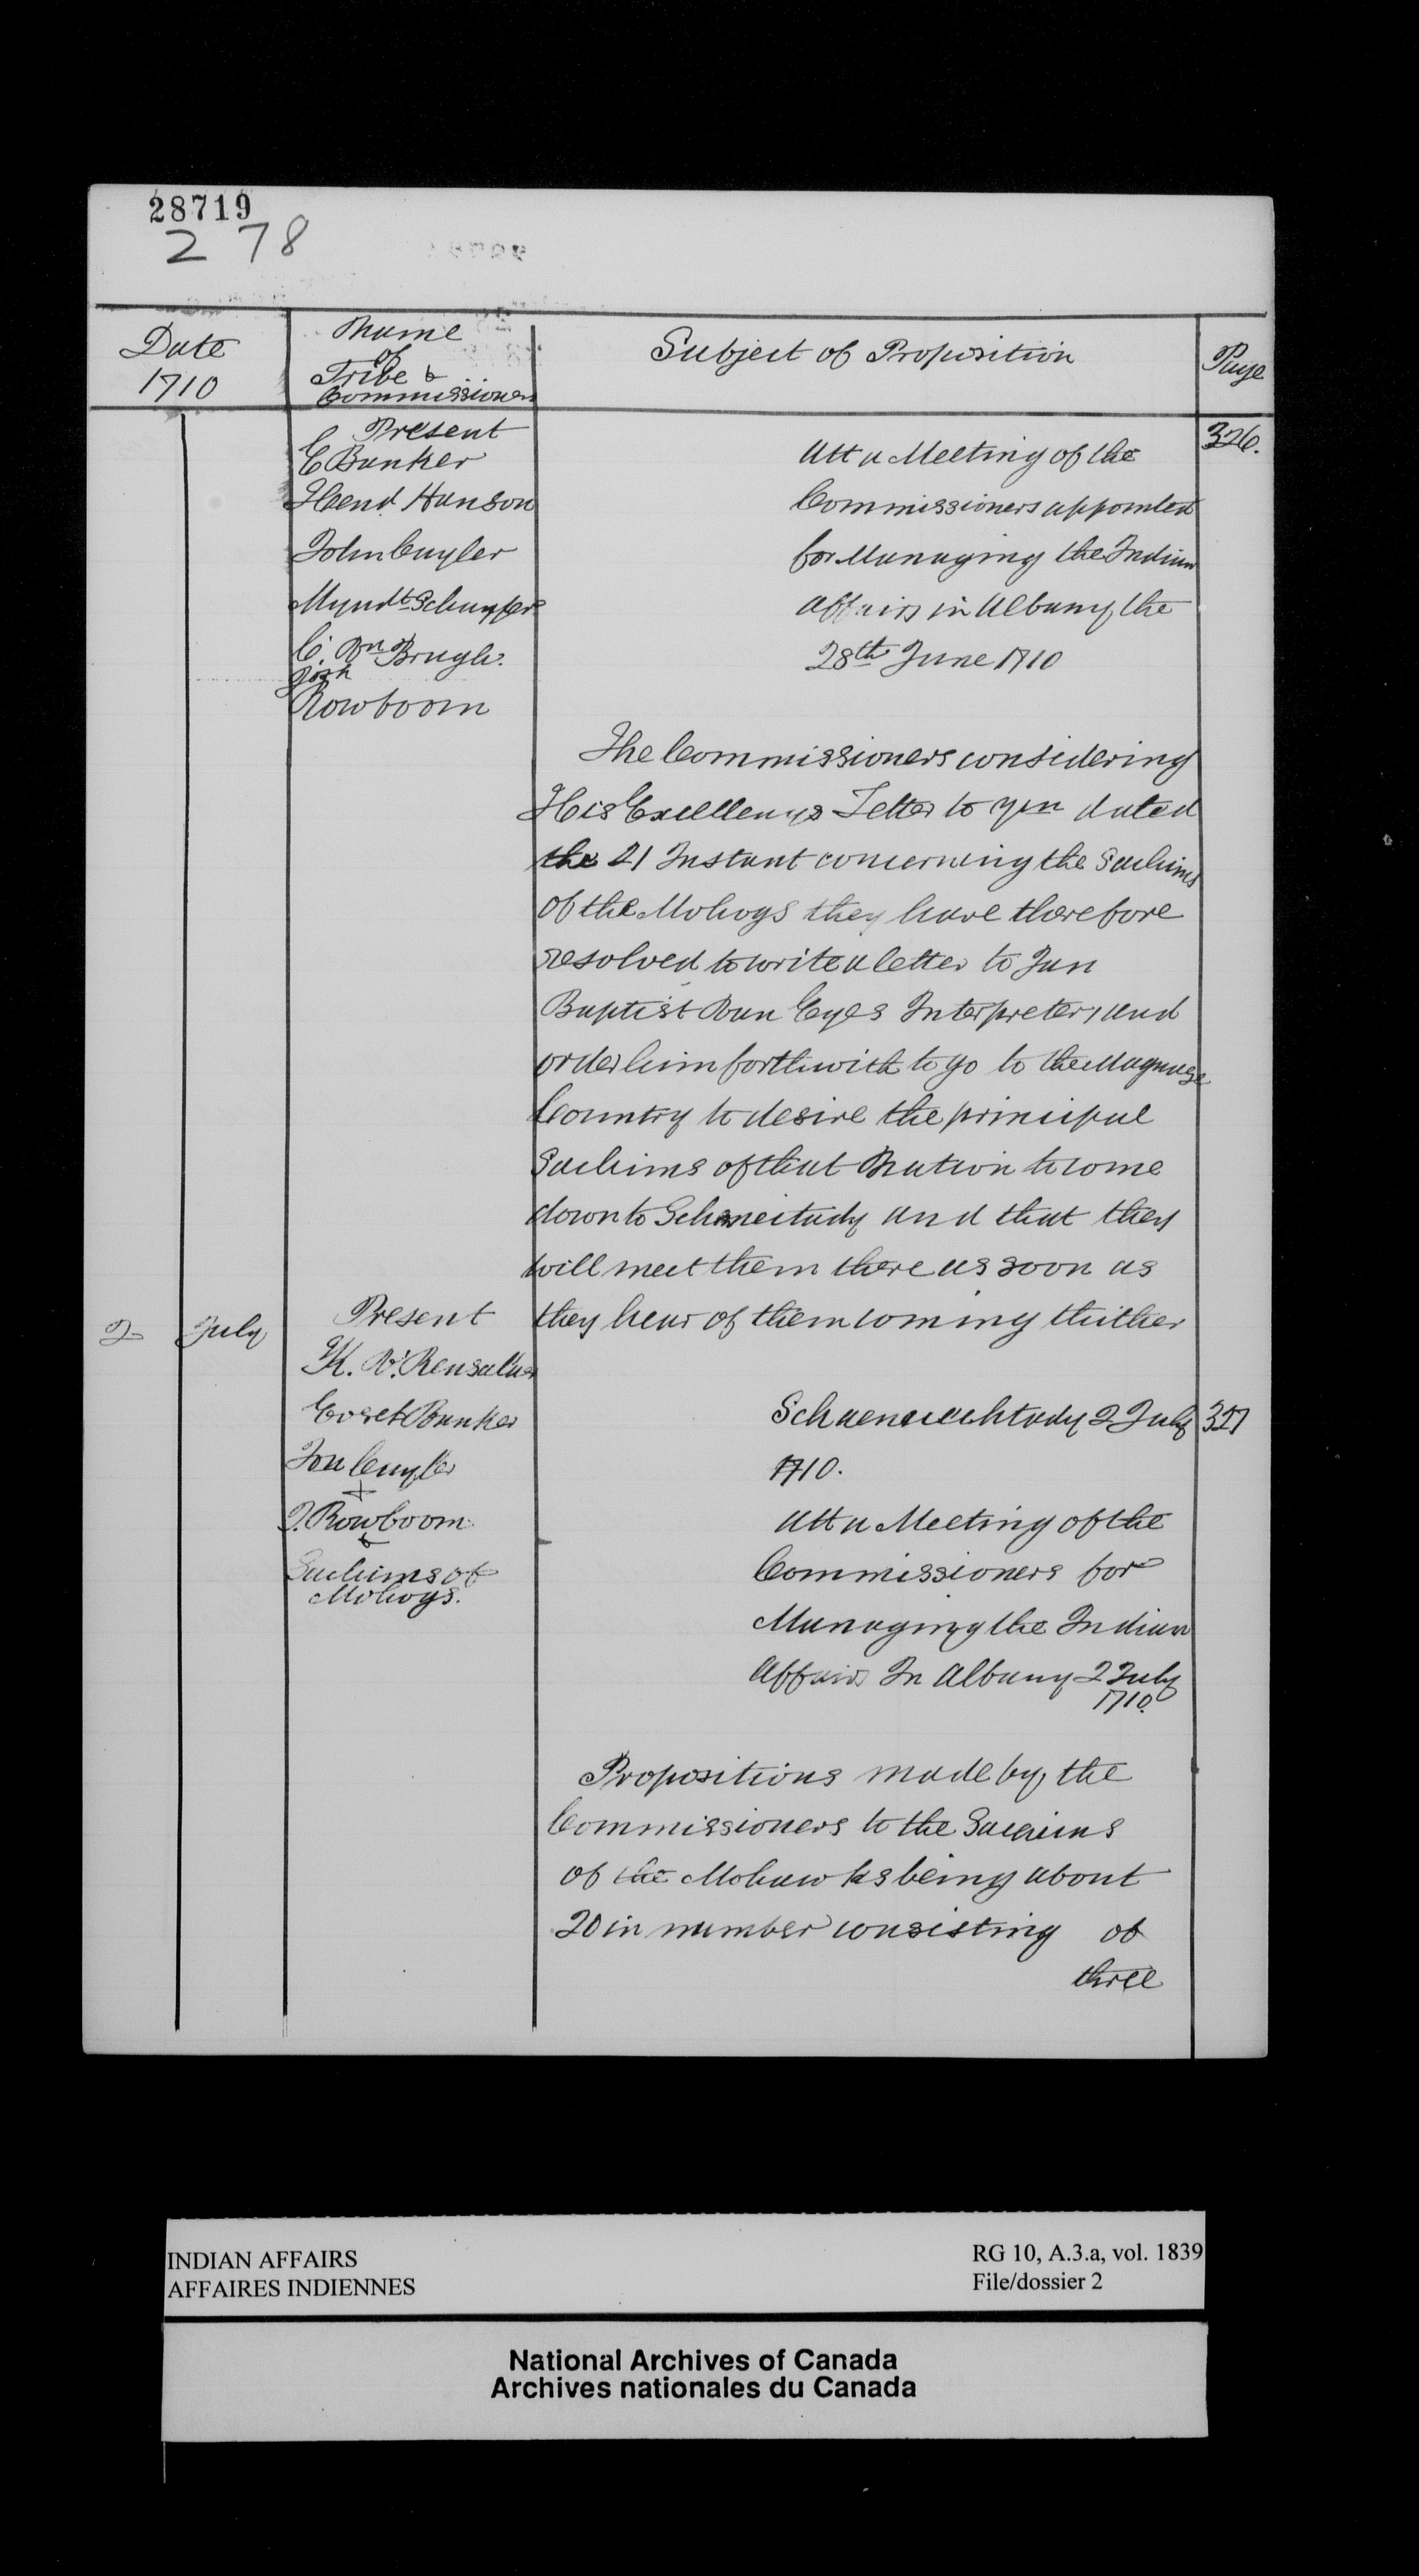 28719
278
Date
1710
Name
of
Tribe &
Commissioners
Subject of Proposition
Page
Present
E Banker
Hend Hanson
John Cuyler
Mynd.t Schuyler
C. Vn Brugh.
Josh
Rowboom
Att a Meeting of the
Commissioners appointed
for Managing the Indian
affairs in Albany the
28th June 1710
326.
The Commissioners considering
His Excellencys Letter to ym dated
the 21 Instant concerning the Sachims
of the Mohogs they have therefore
resolved to write a letter to Jan
Baptist Van Eyes Interpreter, and
order him forthwith to go to the Maquase
Country to desire the principal
Sachims of that Nation to come
down to Schonectady and that they
will meet them there as soon as
they hear of them coming thither
2 July
Present
K. V. Rensalaer
Everet Banker
Jon Cuyler
+
J. Rowboom
&
Sachims of
Mohogs.
Schaenaechtady 2 July
1710.
327
Att a Meeting of the
Commissioners for
Managing the Indian
Affairs In Albany 2 July
1710.
Propositions made by the
Commissioners to the Sachims
of the Mohawks being about
20 in number consisting of
three
INDIAN AFFAIRS
AFFAIRES INDIENNES
RG 10, A.3.a, vol. 1839
File/dossier 2
National Archives of Canada
Archives nationales du Canada